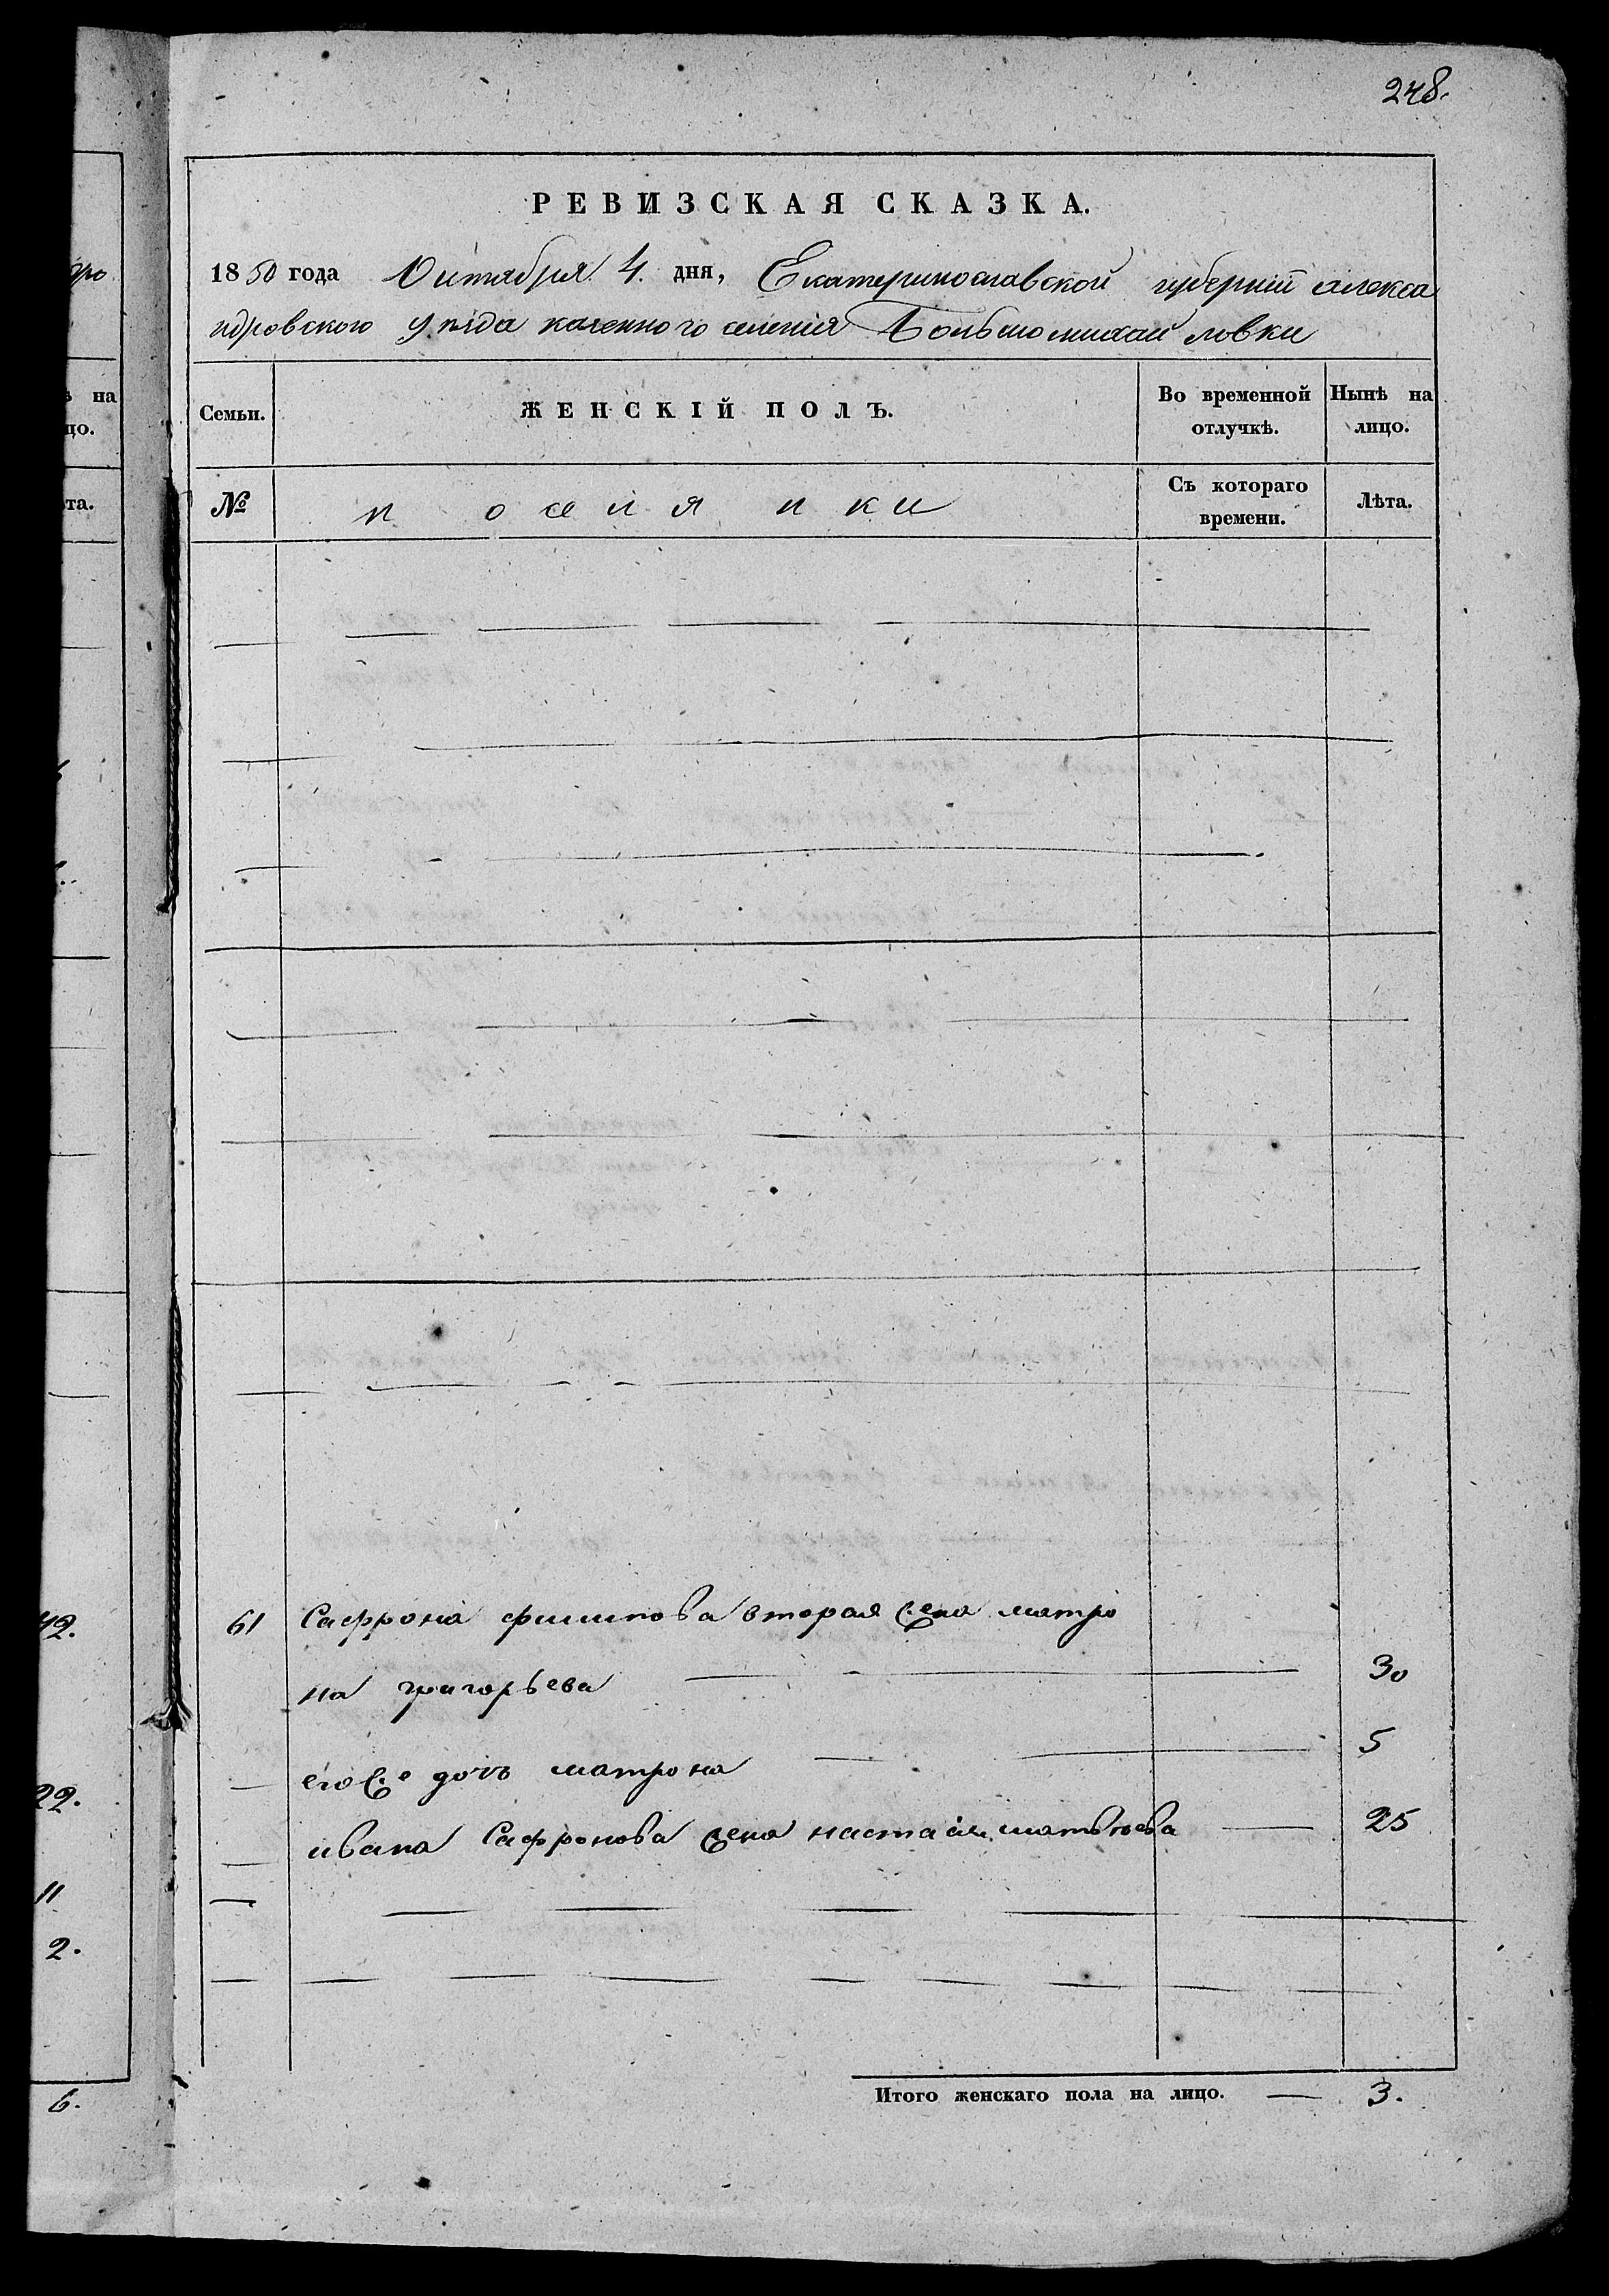 248.
РЕВИЗСКАЯ СКАЗКА.
1850 года Октября 4. дня, Екатеринославской губернии алекса
ндровского уѣзда казенного селения Большомихайловки
Семьи. ЖЕНСКІЙ ПОЛЪ. Во временной отлучкѣ. Нынѣ на лицо.
№ поселянки Съ котораго времени. Лѣта.
61 Сафрона филипова вторая жена матро
на григорьева 30
его же дочь матрона 5
ивана Сафронова жена настасия матвѣева 25
Итого женскаго пола на лицо. 3.
ѣ на
цо.
та.
42.
22.
11
2.
6.